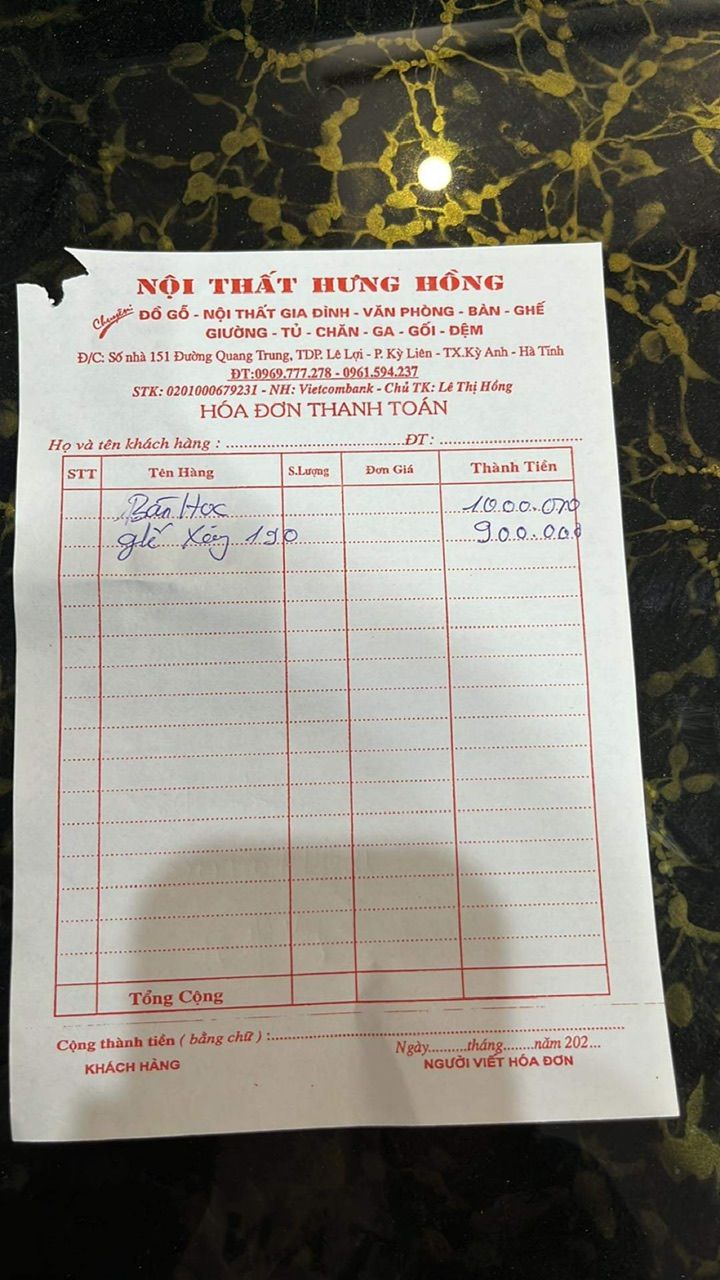 NỘI THẤT HƯNG HỒNG
Chuyên: ĐỒ GỖ - NỘI THẤT GIA ĐÌNH - VĂN PHÒNG - BÀN - GHẾ
GIƯỜNG - TỦ - CHĂN - GA - GỐI - ĐỆM
Đ/C: Số nhà 151 Đường Quang Trung, TDP. Lê Lợi - P. Kỳ Liên - TX.Kỳ Anh - Hà Tĩnh
ĐT:0969.777.278 - 0961.594.237
STK: 0201000679231 - NH: Vietcombank - Chủ TK: Lê Thị Hồng
HÓA ĐƠN THANH TOÁN
Họ và tên khách hàng : ........................................ĐT: ................................
STT Tên Hàng S.Lượng Đơn Giá Thành Tiền
Bàn Học 1000.000
ghế 190 900.000
Tổng Cộng
Cộng thành tiền ( bằng chữ ) :................................................................
Ngày.........tháng.......năm 202...
KHÁCH HÀNG NGƯỜI VIẾT HÓA ĐƠN